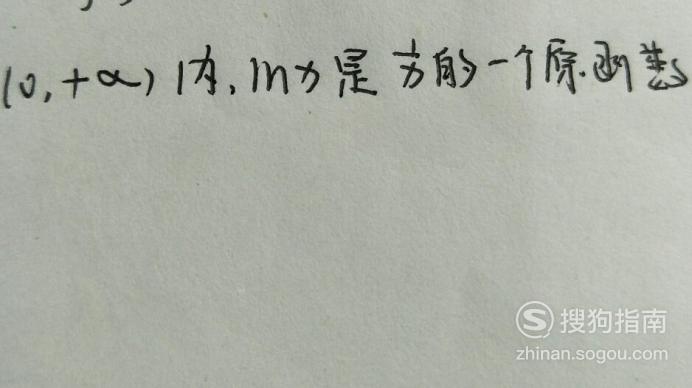 (0,+∞)内,lnx是1/x的一个原函数
搜狗指南
zhinan.sogou.com